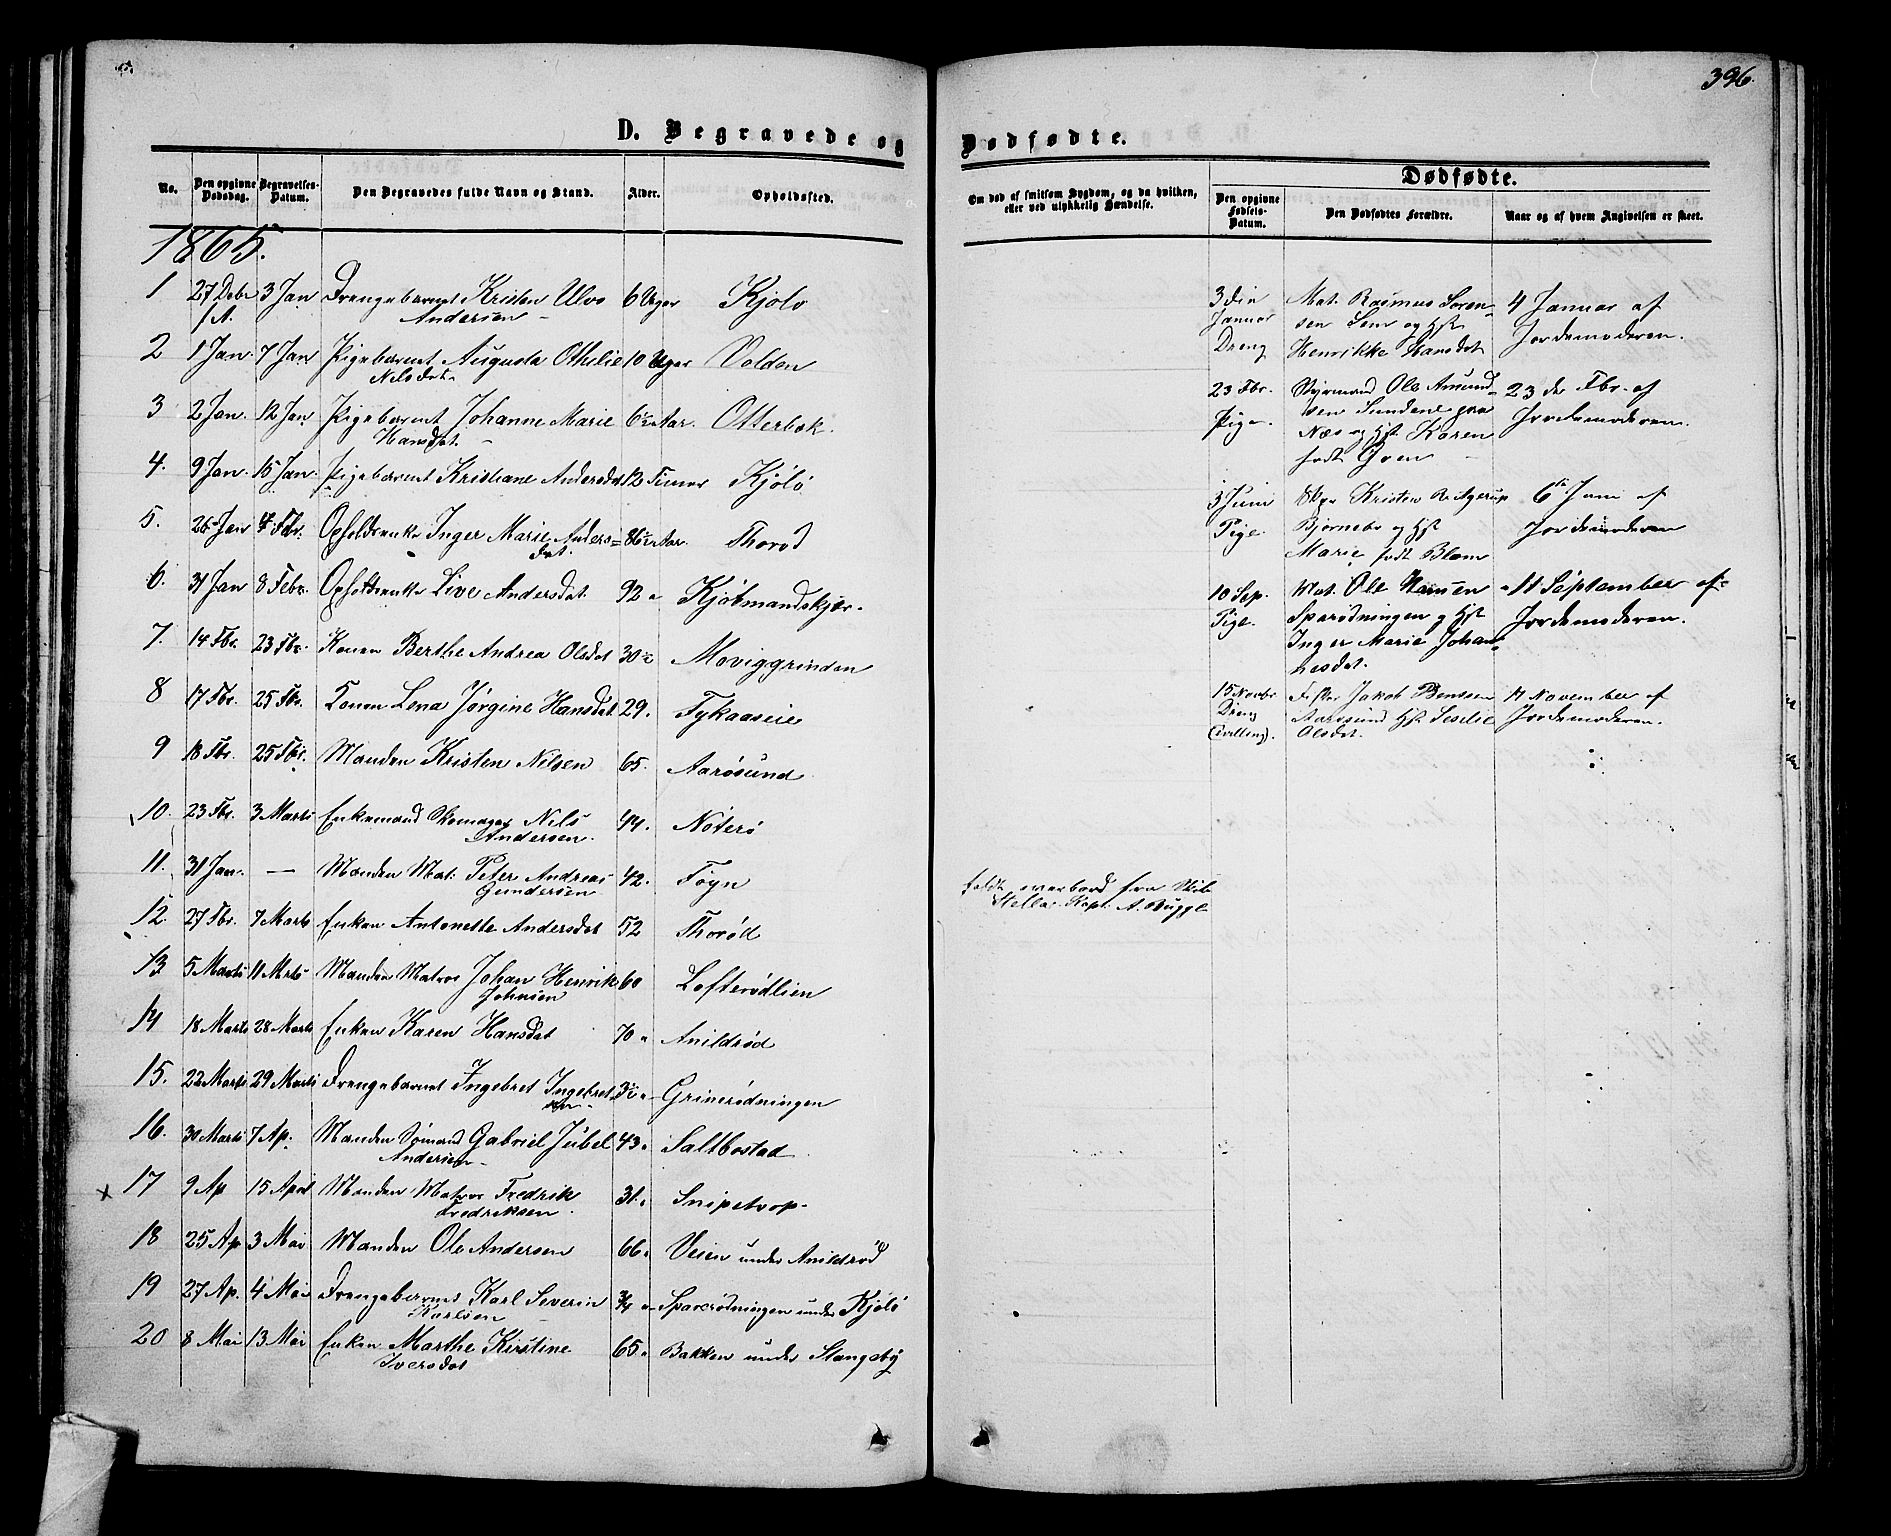 396.
D. Begravede og Dødfødte.
No. Den opgivne Dødsdag. Begravelses-Datum. Den Begravedes fulde Navn og Stand. Alder. Opholdssted.
Om død af smitsom Sygdom, og da hvilken, eller ved ulykkelig Hændelse.
Dødfødte.
Den opgivne Fødsels-Datum. Den Dødfødtes Forældre. Naar og af hvem Angivelsen er skeet.
1865.
1 27 Debr 3 Jan Drengebarnet Kristen Ulvo 6 Uger Kjølø
f.A. Andersen
2 1 Jan 7 Jan Pigebarnet Augusta Othilie 10 Uger Volden
Nilsdat.
3 2 Jan. 12 Jan Pigebarnet Johanne Marie 6½ Aar. Otterbæk.
Hansdat.
4. 9 Jan. 15 Jan. Pigebarnet Kristiane Andersdat 12 Timer Kjølø
5. 26 Jan 4 Fbr. Opholdsenke Inger Marie Anders= 86½ Aar. Thorød
dat.
6. 31 Jan 8 Febr. Opholdsenke Live Andersdat. 92 " Kjøbmandskjær.
7. 14 Fbr. 23 Fbr. Konen Berthe Andrea Olsdat 30½ Moviggrinden
8 17 Fbr. 25 Fbr. Konen Lena Jørgine Hansdat. 29. Fykaaseie
9 18 Fbr. 25 Fbr. Manden Kristen Nilsen 65. Aarøsund
10. 23 Fbr. 3 Marts Enkemand Skomager Nils 44. Nøterø
Andersen.
11. 31 Jan. — Manden Mat. Peter Andreas 42. Føyn
Gundersen
12. 27 Fbr. 7 Marts Enken Antonette Andersdat 52 Thorød
13 5 Marts 11 Marts Manden Matros Johan Henrik 60 Lofterødlien
Johnsen
14 18 Marts 28 Marts Enken Karen Hansdat 70 " Anildrød
15. 22 Marts 29 Marts Drengebarnet Ingebret Ingebret 3½ " Grinerødningen
sen
16. 30 Marts 7 Ap. Manden Sømand Gabriel Jubel 43 " Saltbostad
Andersen
x 17 9 Ap 15 April Manden Matros Fredrik 31. " Snipetrop
Fredriksen.
18 25 Ap. 3 Mai Manden Ole Andersen 66 " Veien under Anildrød
19 27 Ap. 4 Mai Drengebarnet Karl Severin ¾ " Sparerødningen under Kjølø
Karlsen
20 8 Mai 13 Mai Enken Marthe Kirstine 65 " Bakken under Stangeby
Iversdat
faldt overbord fra Skib
Hella. Kapt. A. Bugge
3die Mat. Rasmus Soren- 4 Januar af
Januar sen Sem og Hst. Jordemoderen.
Dreng Henrikke Hansdat
23 Fbr. Styrmand Ole Amund- 23 de Fbr. af
Pige. sen Sundene paa Jordemoderen.
Næs og Hst. Karen
født Gven
3 Juni Skpr Kristen B. Agerup 6te Juni af
Pige. Bjørnebo og Hst Jordemoderen
Marie født Blom
10 Sep. Mat. Ole Hansen 11 September af
Pige. Sparødningen og Hst Jordemoderen.
Inger Marie Johan
nesdat.
15 Novbr Jakob Bentsen 17 November af
Dreng Aarøsund Hst. Seselie Jordemoderen.
(tvilling). Olsdat.